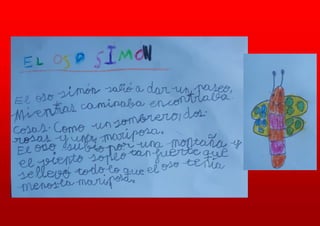 EL OSO SIMON
El oso simón salió a dar un paseo.
Mientras caminaba encontraba
cosas. Como un sombrero, dos
rosas y una mariposa.
El oso subio por una montaña y
el viento soplo tan fuerte que
se llevo todo lo que el oso tenia
menos la mariposa.